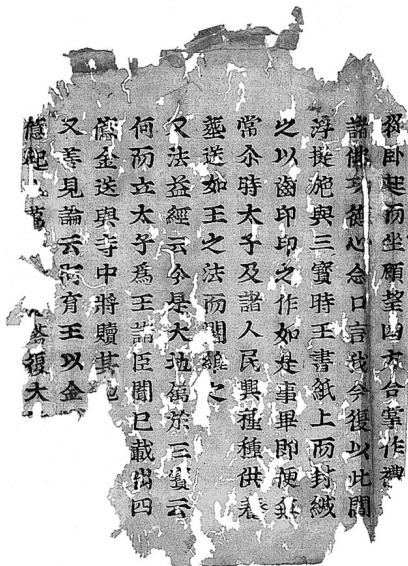 從卧起而坐顧望四方合掌作禮
諸佛功德心念口言我今復以此閻
浮提施與三寶時王書紙上而封緘
之以齒印印之作如是事畢即便無
常尒時太子及諸人民興種種供養
葬送如王之法而闍維之
又法益經云今是大地屬於三寶云
何而立太子爲王諸臣聞已載出四
億金送與寺中將贖其地
又善見論云阿育王以金
億起萬塔復大